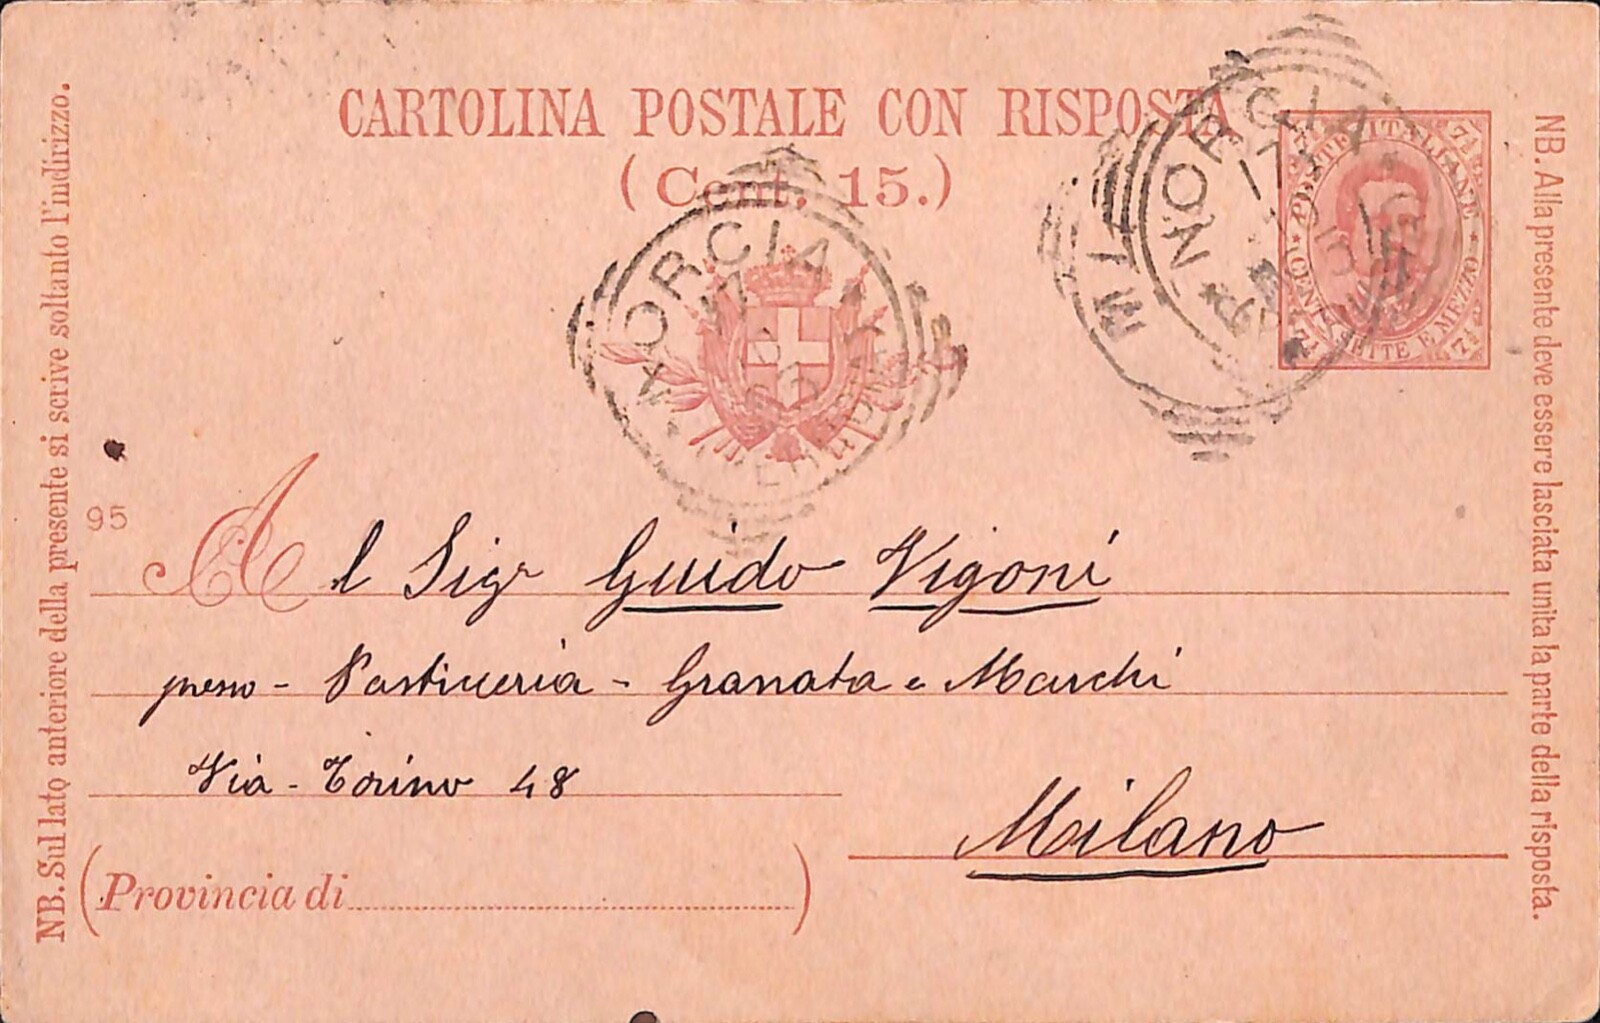 CARTOLINA POSTALE CON RISPOSTA
(Cent. 15.)
NORCIA
17
NORCIA
17
MIL
POSTE ITALIANE
CENT. SETTE E MEZZO
7½
7½
7½
7½
NB. Sul lato anteriore della presente si scrive soltanto l'indirizzo.
95
Al Sigr Guido Vigoni
presso - Pasticceria - Granata e Marchi
Via - Torino 48
Milano
(Provincia di)
NB. Alla presente deve essere lasciata unita la parte della risposta.